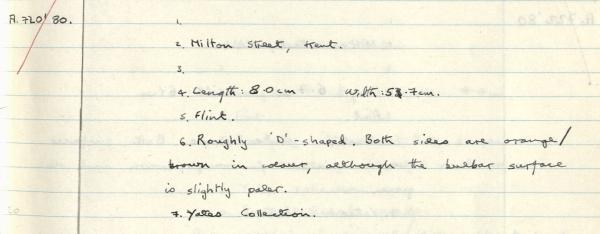 A.720'80. 1.
2. Milton Street, Kent.
3.
4. Length: 8.0cm Width: 5.7cm.
5. Flint.
6. Roughly 'D'-shaped. Both sides are orange/
brown in colour, although the bulbar surface
is slightly paler.
7. Yates Collection.